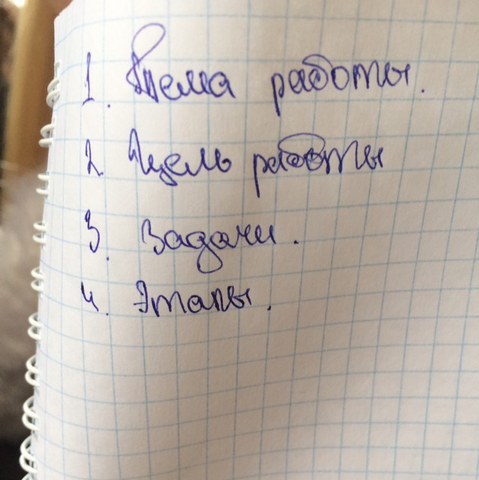 1. Тема работы.
2. Цель работы
3. Задачи.
4. Этапы.